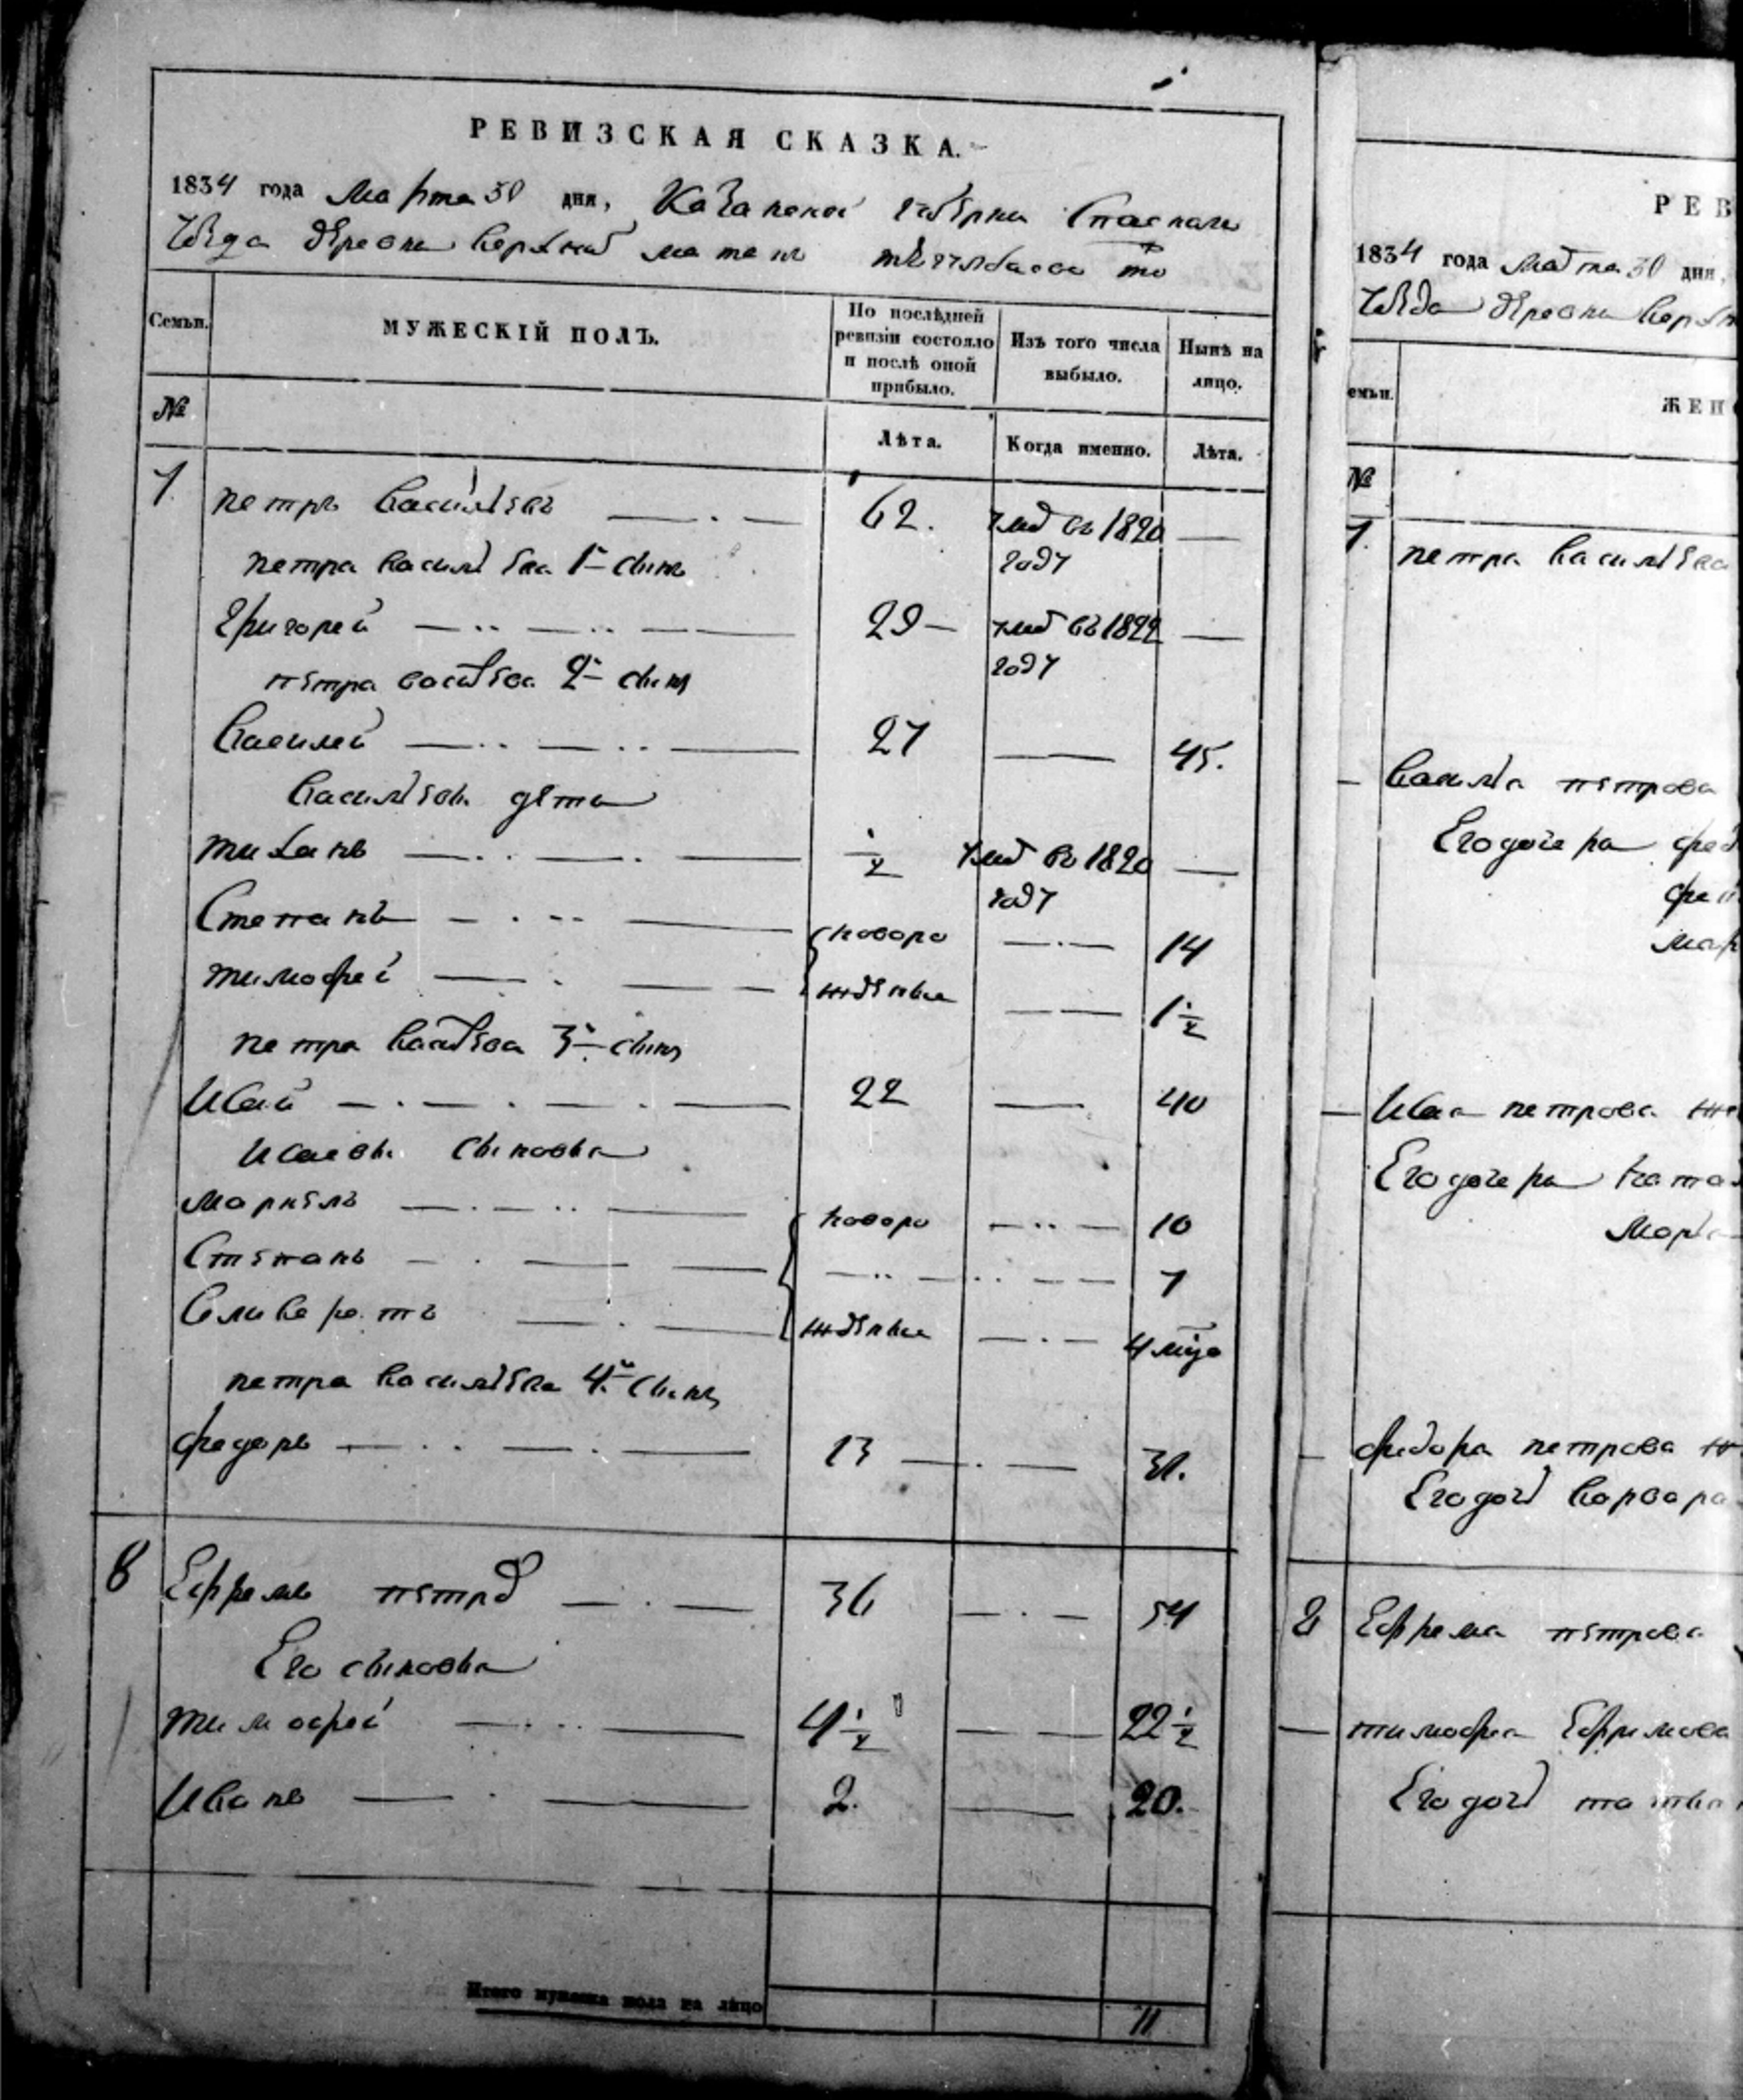 РЕВИЗСКАЯ СКАЗКА.
1834 года марта 30 дня, Казанской губерни Спаскаго
уезда деревни верхней матак
Семьи.
МУЖЕСКІЙ ПОЛЪ.
По послѣдней ревизіи состояло и послѣ оной прибыло.
Изъ того числа выбыло.
Нынѣ на лицо.
№
Лѣта.
Когда именно.
Лѣта.
7. петръ васильевъ 62. умер въ 1820 году
петра васильева 1й сынъ
григорей 29 умер въ 1822 году
петра васильева 2й сынъ
василей 27 45.
васильевы дети
тиханъ ½ умер въ 1820 году
степанъ новоро 14
тимофей жденые 1½
петра васильева 3й сынъ
исай 22 40
исаевы сыновья
маркелъ новоро 10
степанъ 7
селиверстъ жденые 4 мцо
петра васильева 4й сынъ
федоръ 13 31.
8 Ефремъ петров 36 54
Его сыновья
тимофей 4½ 22½
иванъ 2. 20.
Итого мужеска пола на лицо 11
РЕВ
1834 года марта 30 дня,
уезда деревни верхн
емьи.
ЖЕН
№
7. петра васильева
василья петрова
Его дочери фед
мар
исая петрова же
Его дочери ната
марь
федора петрова ж
Его дочь варвара
8 Ефрема петрова
тимофея Ефремова
Его дочь татья